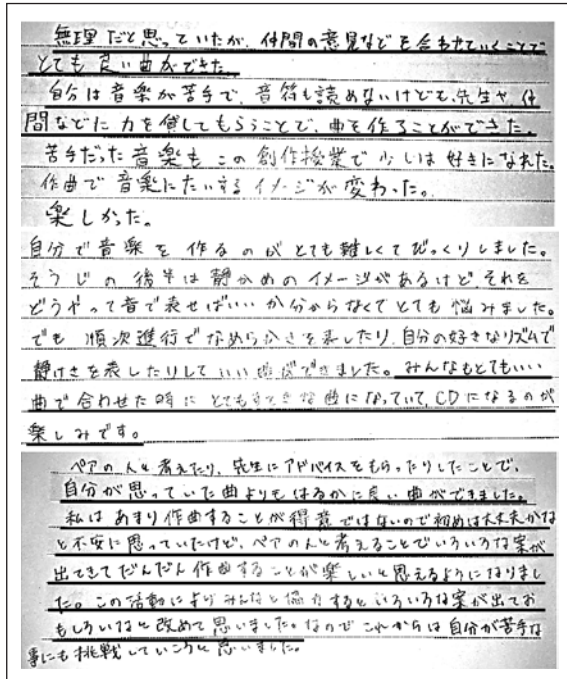 無理だと思っていたが、仲間の意見などを合わせていくことで
とても良い曲ができた。
自分は音楽が苦手で、音符も読めないけども、先生や仲
間などに力を貸してもらうことで、曲を作ることができた。
苦手だった音楽もこの創作授業で少しは好きになれた。
作曲で音楽にたいするイメージが変わった。
楽しかった。
自分で音楽を作るのがとても難しくてびっくりしました。
そうじの後半は静かめのイメージがあるけど、それを
どうやって音で表せばいいか分からなくてとても悩みました。
でも順次進行でなめらかさを表したり、自分の好きなリズムで
静けさを表したりしていい曲ができました。みんなもとてもいい
曲で合わせた時にとてもすてきな曲になっていて、CDになるのが
楽しみです。
ペアの人と考えたり、先生にアドバイスをもらったりしたことで、
自分が思っていた曲よりもはるかに良い曲ができました。
私はあまり作曲することが得意ではないので初めは大丈夫かな
と不安に思っていたけど、ペアの人と考えることでいろいろな案が
出てきてだんだん作曲することが楽しいと思えるようになりまし
た。この活動によりみんなと協力するといろいろな案が出てお
もしろいなと改めて思いました。なのでこれからは自分が苦手な
事にも挑戦していこうと思いました。